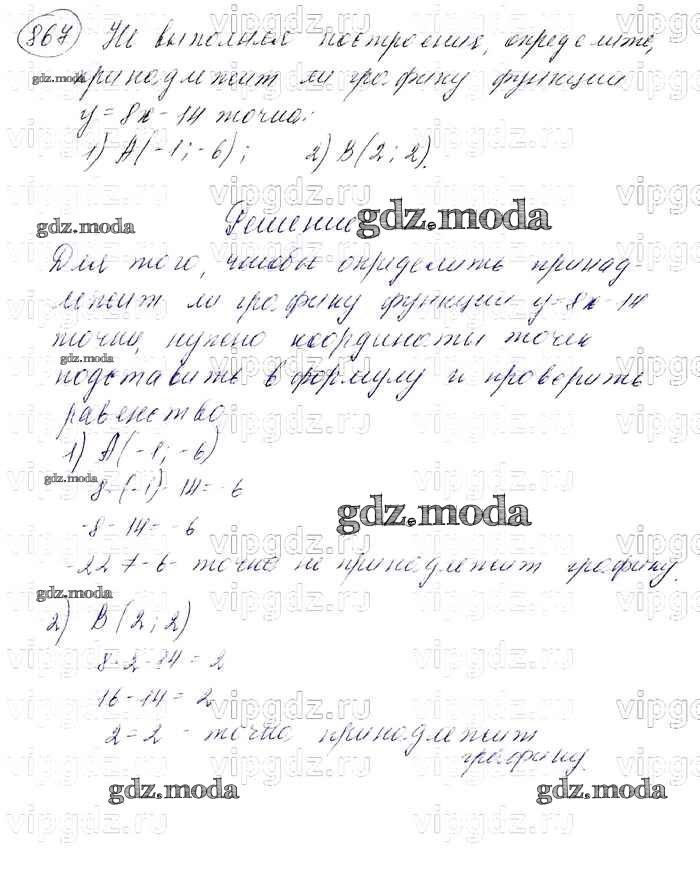 867 Не выполняя построения, определите,
принадлежит ли графику функции
y = 8x - 14 точка:
1) А(-1; -6); 2) В(2; 2).
Решение
Для того, чтобы определить принад-
лежит ли графику функции y=8x-14
точка, нужно координаты точек
подставить в формулу и проверить
равенство
1) А(-1; -6)
8·(-1)-14=-6
-8-14=-6
-22≠-6- точка не принадлежит графику.
2) В(2; 2)
8·2-14=2
16-14=2
2=2 - точка принадлежит
графику.
gdz.moda
vipgdz.ru